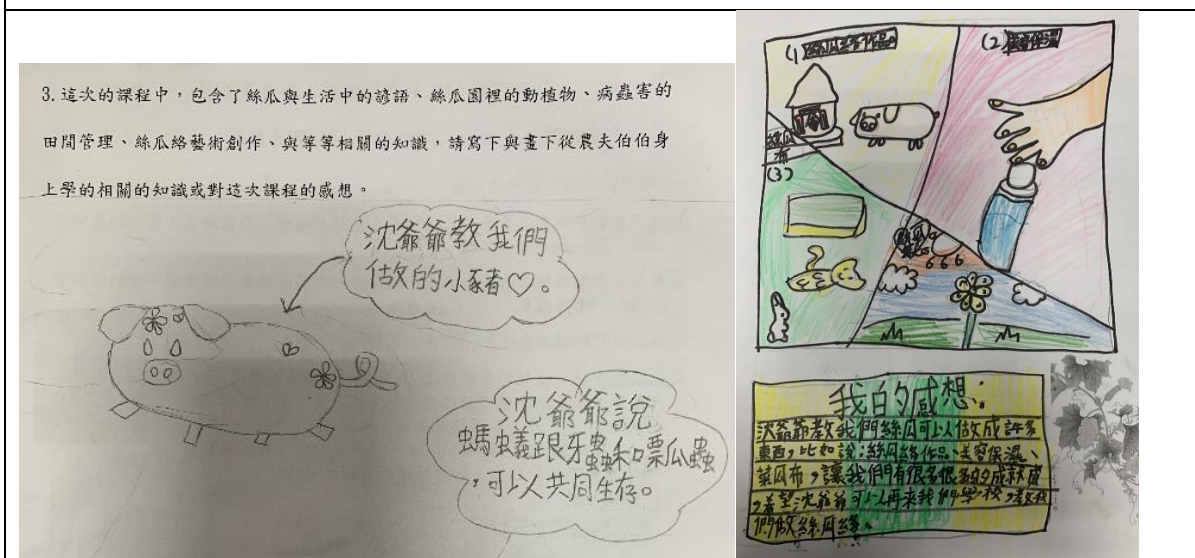 3.這次的課程中，包含了絲瓜與生活中的諺語、絲瓜園裡的動植物、病蟲害的
田間管理、絲瓜絡藝術創作、與等等相關的知識，請寫下與畫下從農夫伯伯身
上學的相關的知識或對這次課程的感想。
沈爺爺教我們
做的小豬♡。
沈爺爺說
螞蟻跟牙蟲和嘌瓜蟲
，可以共同生存。
(1)絲瓜絡作品
(2)美容保濕
絲瓜
布
(3)
666
我的感想：
沈爺爺教我們絲瓜可以做成許多
東西，比如說：絲瓜絡作品、美容保濕、
菜瓜布，讓我們有很多很多的成就感
，希望沈爺爺可以再來我們學校，教我
們做絲瓜絡。